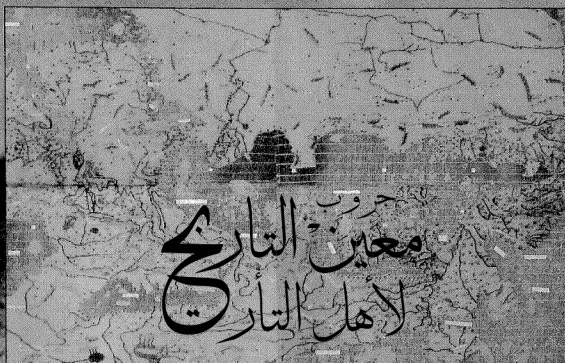 حروب
معين التاريخ
لأهل التأر